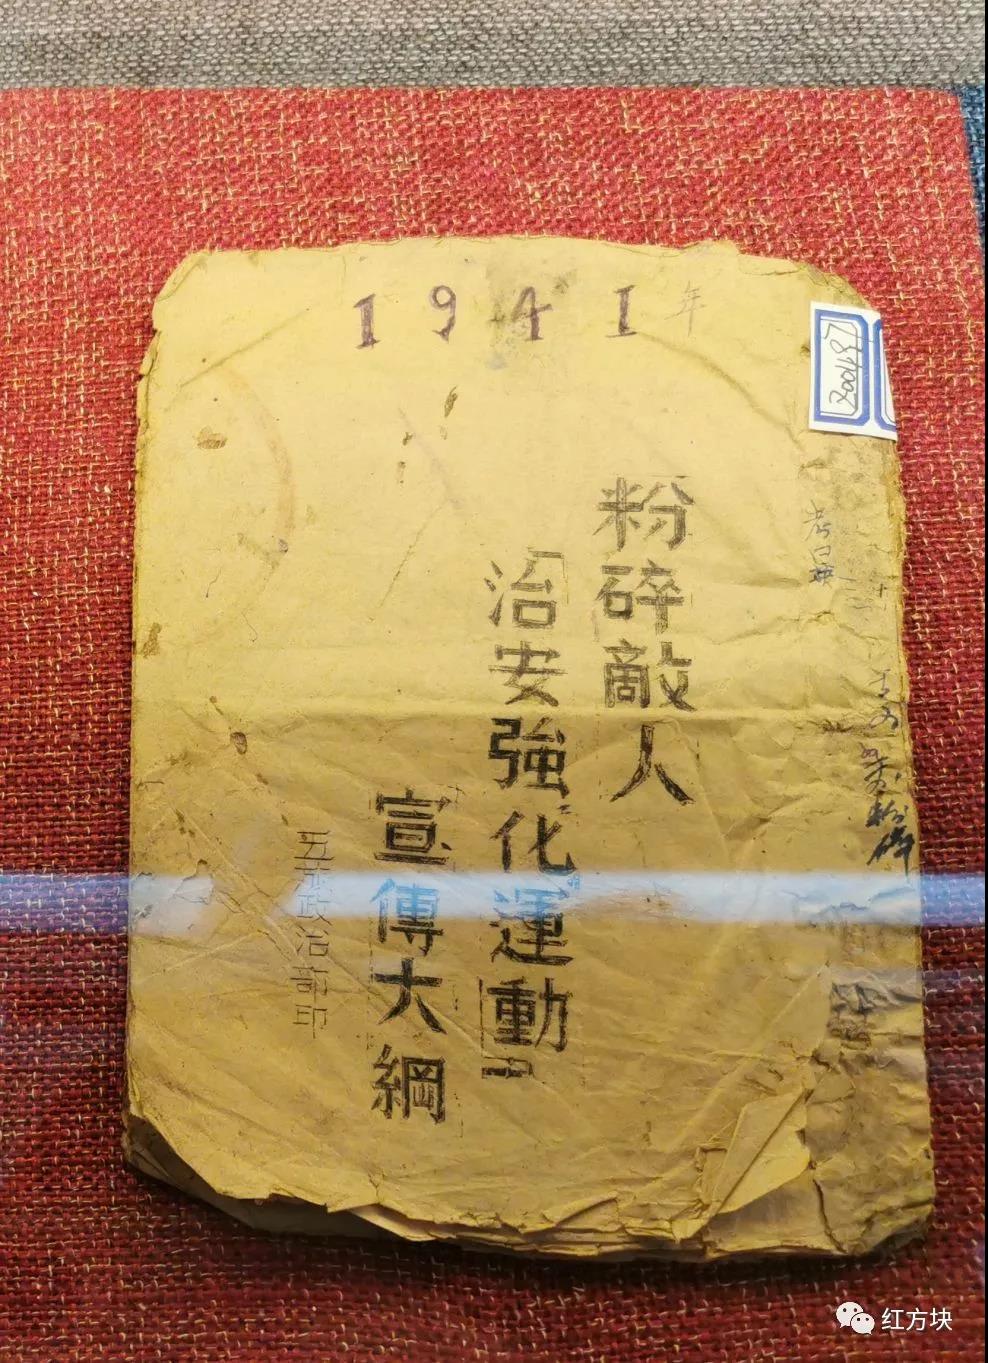 1941年
粉碎敵人
「治安強化運動」
宣傳大綱
政治部印
粉碎
红方块